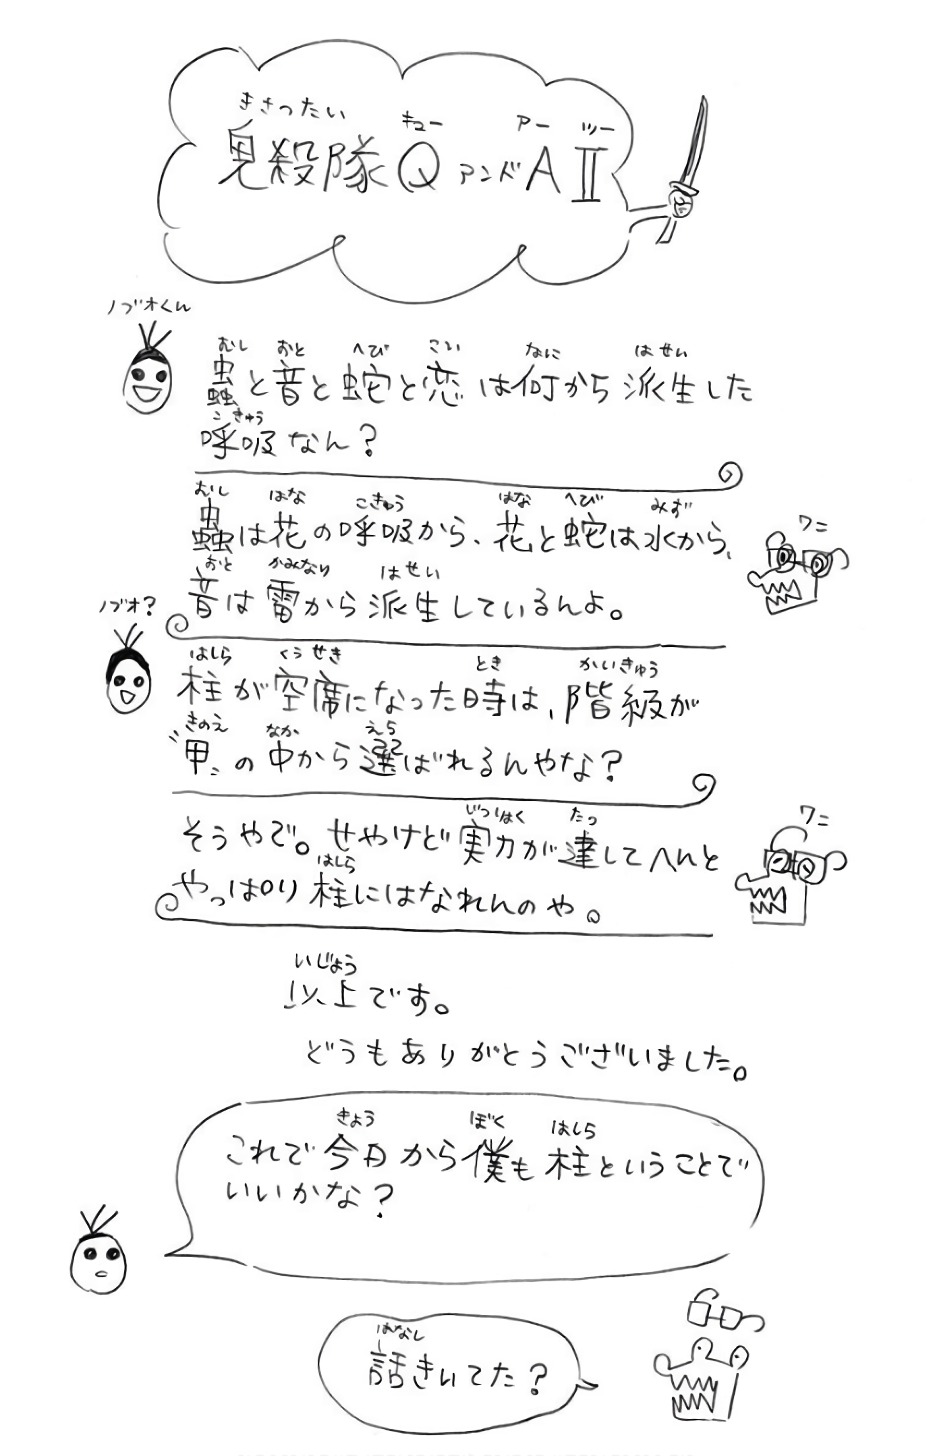 きさったい キュー アー ツー
鬼殺隊QアンドAⅡ
ノブオくん
むし おと へび こい なに はせい
蟲と音と蛇と恋は何から派生した
こきゅう
呼吸なん?
むし はな こきゅう はな へび みず
蟲は花の呼吸から、花と蛇は水から、
ワニ
おと かみなり はせい
音は雷から派生しているんよ。
ノブオ?
はしら くうせき とき かいきゅう
柱が空席になった時は、階級が
きのえ なか えら
〝甲〟の中から選ばれるんやな?
じつりょく たっ
そうやで。せやけど実力が達してへんと
ワニ
はしら
やっぱり柱にはなれんのや。
いじょう
以上です。
どうもありがとうございました。
きょう ぼく はしら
これで今日から僕も柱ということで
いいかな?
はなし
話きいてた?